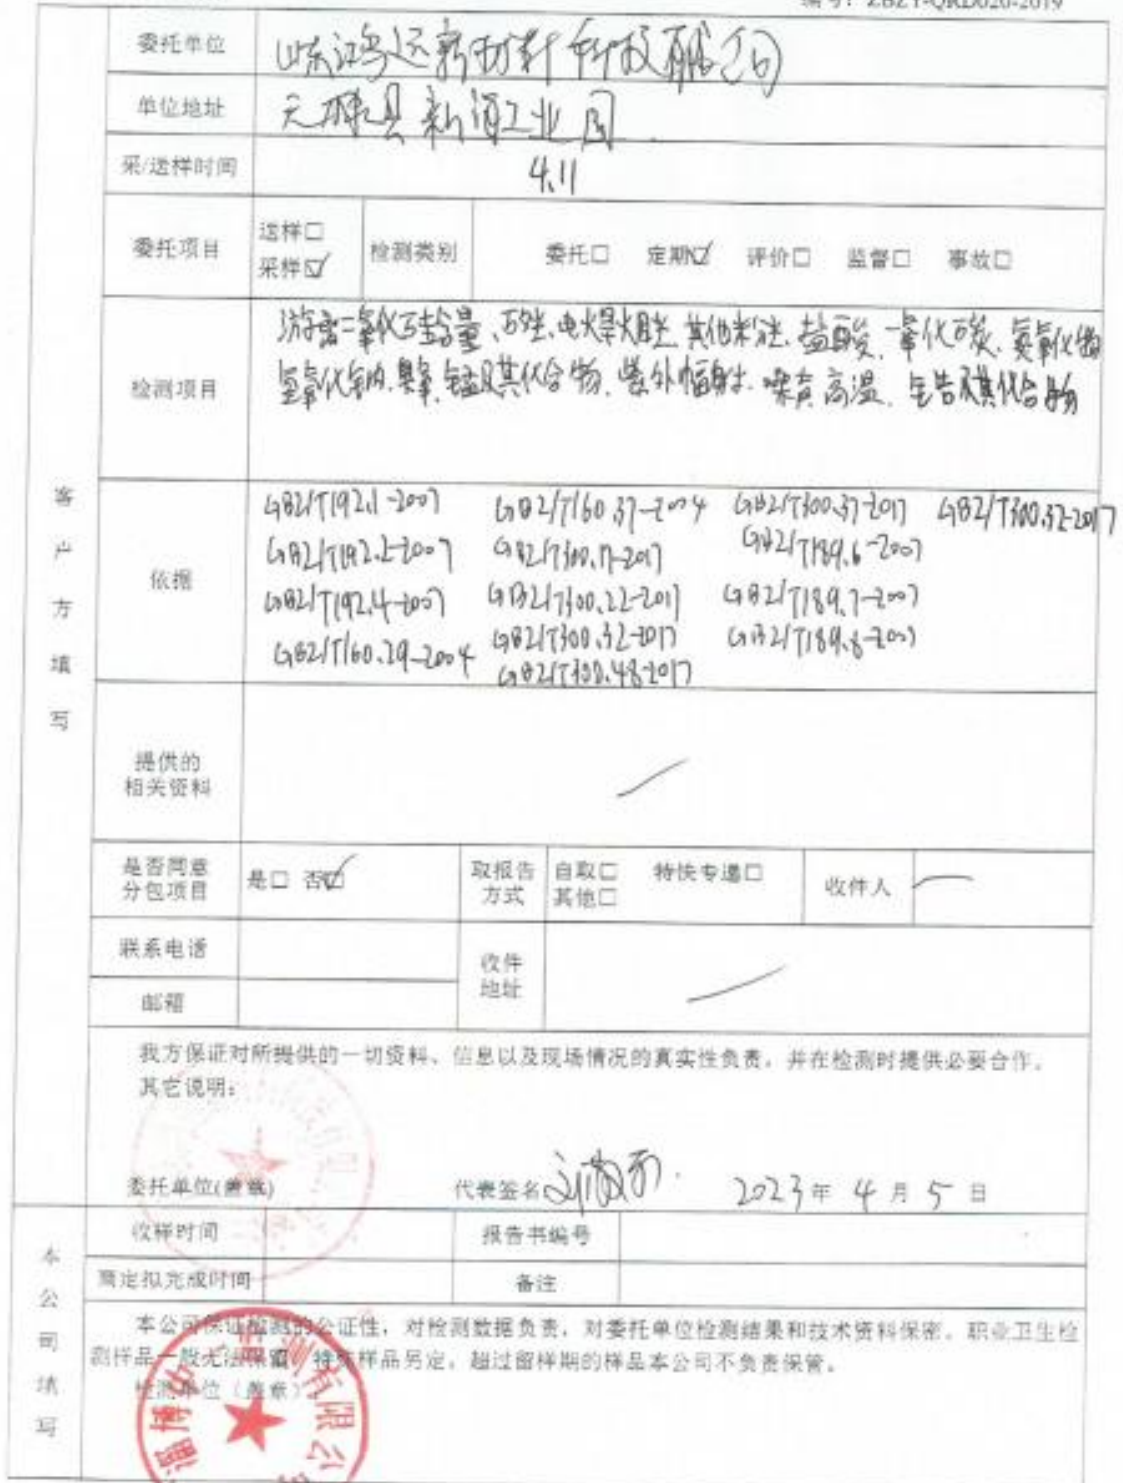 编号：ZBZY-QRD020-2019
委托单位 山东鸿运新材料科技有限公司
单位地址 无棣县新海工业园
采/送样时间 4.11
委托项目 送样□ 采样☑ 检测类别 委托□ 定期☑ 评价□ 监督□ 事故□
检测项目
游离二氧化硅含量、矽尘、电焊烟尘、其他粉尘、盐酸、一氧化碳、氮氧化物
氢氧化钠、臭氧、锰及其化合物、紫外辐射、噪声、高温、锆及其化合物
客户方填写
依据
GBZ/T192.1-2007 GBZ/T160.37-2004 GBZ/T300.37-2017 GBZ/T300.32-2017
GBZ/T192.2-2007 GBZ/T300.17-2017 GBZ/T189.6-2007
GBZ/T192.4-2007 GBZ/T300.22-2017 GBZ/T189.7-2007
GBZ/T160.29-2004 GBZ/T300.32-2017 GBZ/T189.8-2007
GBZ/T300.48-2017
提供的
相关资料
是否同意
分包项目 是□ 否☑ 取报告
方式 自取□ 特快专递□
其他□ 收件人
联系电话
收件
地址
邮箱
我方保证对所提供的一切资料、信息以及现场情况的真实性负责，并在检测时提供必要合作。
其它说明：
委托单位(盖章) 代表签名 2023年4月5日
收样时间 报告书编号
商定拟完成时间 备注
本公司填写
本公司保证检测的公证性，对检测数据负责，对委托单位检测结果和技术资料保密。职业卫生检
测样品一般无法保留，特殊样品另定，超过留样期的样品本公司不负责保管。
检测单位（盖章）